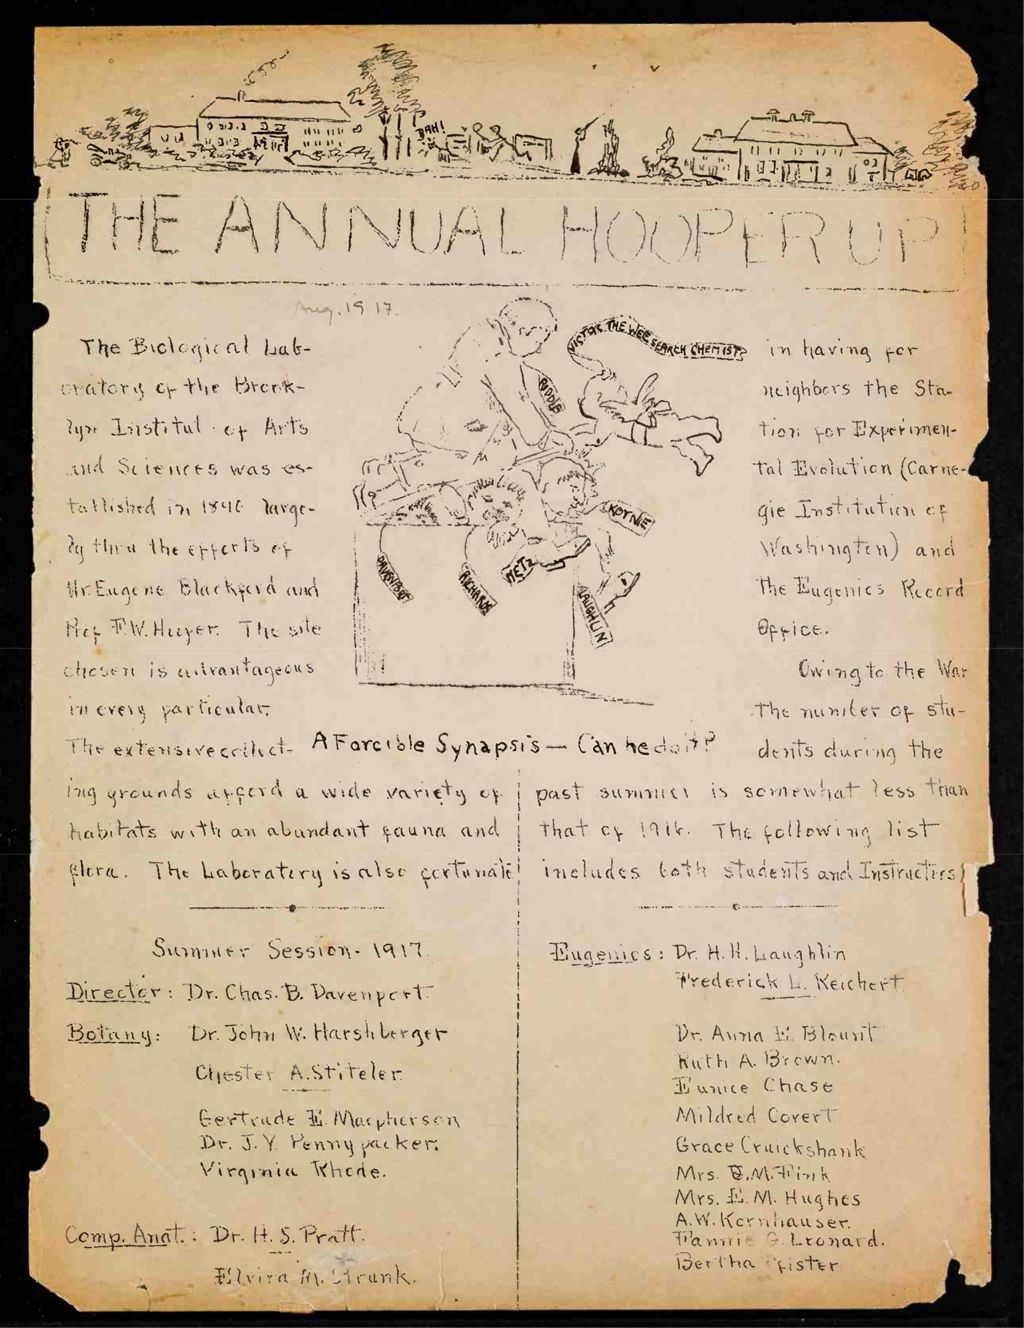 BAH!
THE ANNUAL HOOPER UP
Aug. 1917.
The Biological Lab-
oratory of the Brook-
lyn Institut of Arts
and Sciences was es-
tablished in 1890 large-
ly thru the efforts of
Mr Eugene Blackford and
Prof F.W. Hooper. The site
chosen is advantageous
in every particular.
The extensive collect-
ing grounds afford a wide variety of
habitats with an abundant fauna and
flora. The Laboratory is also fortunate
VICTOR THE WEE SEARCH CHEMIST
RIDDLE
KORNIE
METZ
DAVENPORT
RICHARDS
LAUGHLIN
A Forcible Synapsis — Can he do it?
in having for
neighbors the Sta-
tion for Experimen-
tal Evolution (Carne-
gie Institution of
Washington) and
the Eugenics Record
Office.
Owing to the War
the number of stu-
dents during the
past summer is somewhat less than
that of 1916. The following list
includes both students and Instructors
Summer Session - 1917.
Director: Dr. Chas. B. Davenport
Botany: Dr. John W. Harshberger
Chester A. Stiteler
Gertrude E. Macpherson
Dr. J. Y. Pennypacker.
Virginia Rhode.
Comp. Anat.: Dr. H. S. Pratt.
Elvira M. Strunk.
Eugenics: Dr. H. H. Laughlin
Frederick L. Reichert
Dr. Anna E. Blount
Ruth A. Brown.
Eunice Chase
Mildred Covert
Grace Cruickshank
Mrs. M. Fink
Mrs. E. M. Hughes
A. W. Kornhauser.
Fannie G. Leonard.
Bertha Pfister